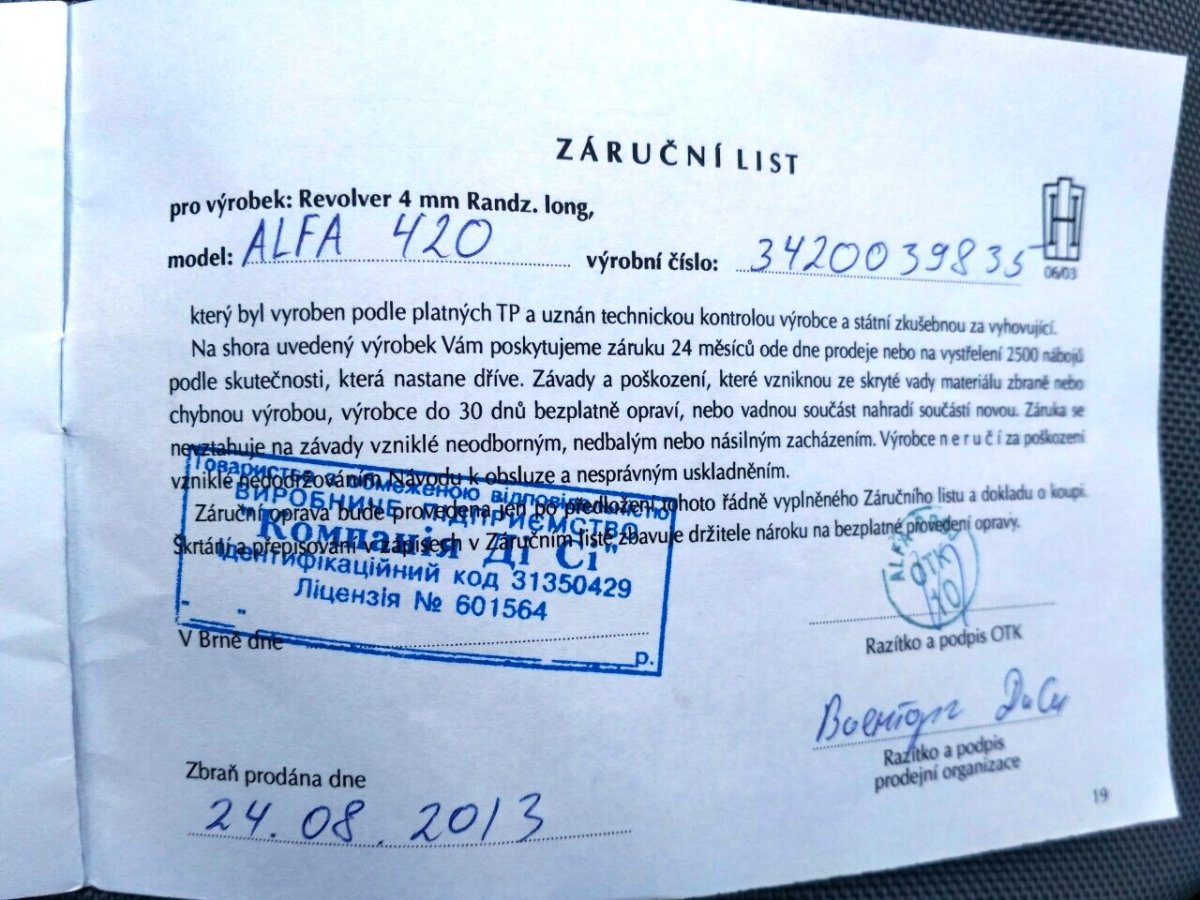 ZÁRUČNÍ LIST
pro výrobek: Revolver 4 mm Randz. long,
model: ALFA 420 výrobní číslo: 3420039835
H
06/03
který byl vyroben podle platných TP a uznán technickou kontrolou výrobce a státní zkušebnou za vyhovující.
Na shora uvedený výrobek Vám poskytujeme záruku 24 měsíců ode dne prodeje nebo na vystřelení 2500 nábojů
podle skutečnosti, která nastane dříve. Závady a poškození, které vzniknou ze skryté vady materiálu zbraně nebo
chybnou výrobou, výrobce do 30 dnů bezplatně opraví, nebo vadnou součást nahradí součástí novou. Záruka se
nevztahuje na závady vzniklé neodborným, nedbalým nebo násilným zacházením. Výrobce n e r u č í za poškození
vzniklé nedodržováním Návodu k obsluze a nesprávným uskladněním.
Záruční oprava bude provedena jen po předložení tohoto řádně vyplněného Záručního listu a dokladu o koupi.
Škrtání a přepisování v zápisech v Záručním listě zbavuje držitele nároku na bezplatné provedení opravy.
Товариство з обмеженою відповідальністю
ВИРОБНИЧЕ ПІДПРИЄМСТВО
"Компанія Ді Сі"
Ідентифікаційний код 31350429
Ліцензія № 601564
р.
ALFA
OTK
10
V Brně dne
Razítko a podpis OTK
Военторг ДиСи
Razítko a podpis
prodejní organizace
Zbraň prodána dne
24.08.2013
19